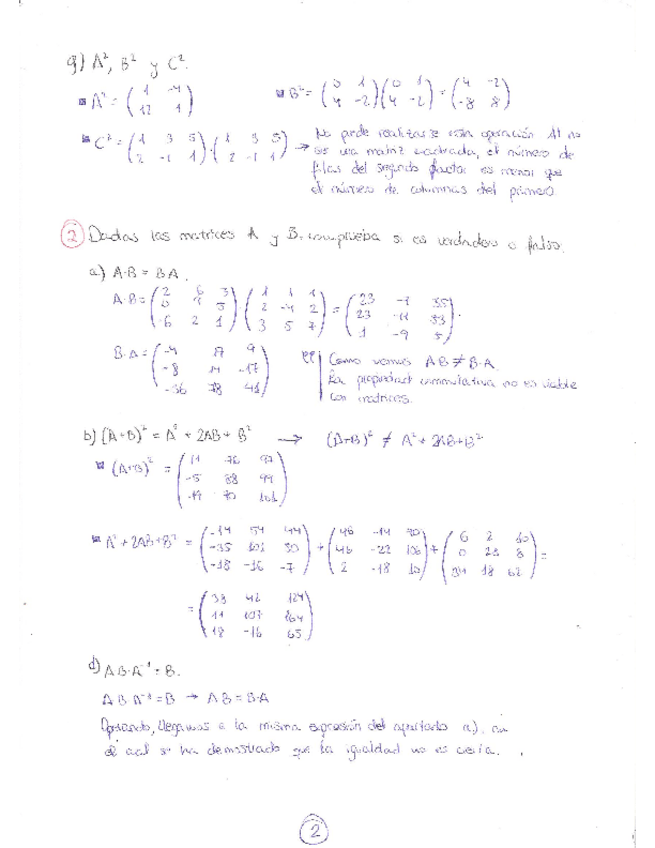 g) A², B² y C².
A² = ( 1 -4 / 12 1 )
B² = ( 0 1 / 4 -2 ) ( 0 1 / 4 -2 ) = ( 4 -2 / -8 8 )
C² = ( 1 3 5 / 2 -1 1 ) · ( 1 3 5 / 2 -1 1 ) → No puede realizarse esta operación. Al no
ser una matriz cuadrada, el número de
filas del segundo factor es menor que
el número de columnas del primero.
2 Dadas las matrices A y B, comprueba si es verdadero o falso.
a) A·B = B·A.
A·B = ( 2 6 3 / 0 5 / -6 2 1 ) ( 1 1 1 / 2 -4 2 / 3 5 7 ) = ( 23 -7 35 / 23 -11 / 1 -9 )
B·A = ( -4 17 9 / -8 14 -17 / -36 78 41 )
Como vemos AB ≠ B·A.
La propiedad conmutativa no es viable
con matrices.
b) (A+B)² = A² + 2AB + B² → (A+B)² ≠ A² + 2AB + B²
(A+B)² = ( 11 76 97 / -5 88 99 / -19 70 101 )
A² + 2AB + B² = ( -14 54 44 / -35 101 30 / -18 -16 -7 ) + ( 46 -14 70 / 46 -22 106 / 2 -18 10 ) + ( 6 2 10 / 0 28 8 / 34 18 62 ) =
= ( 38 42 124 / 11 107 164 / 18 -16 65 )
d) A·B·A⁻¹ = B.
A·B·A⁻¹ = B → A·B = B·A
Operando, llegamos a la misma expresión del apartado a), en
el cual se ha demostrado que la igualdad no es cierta.
2